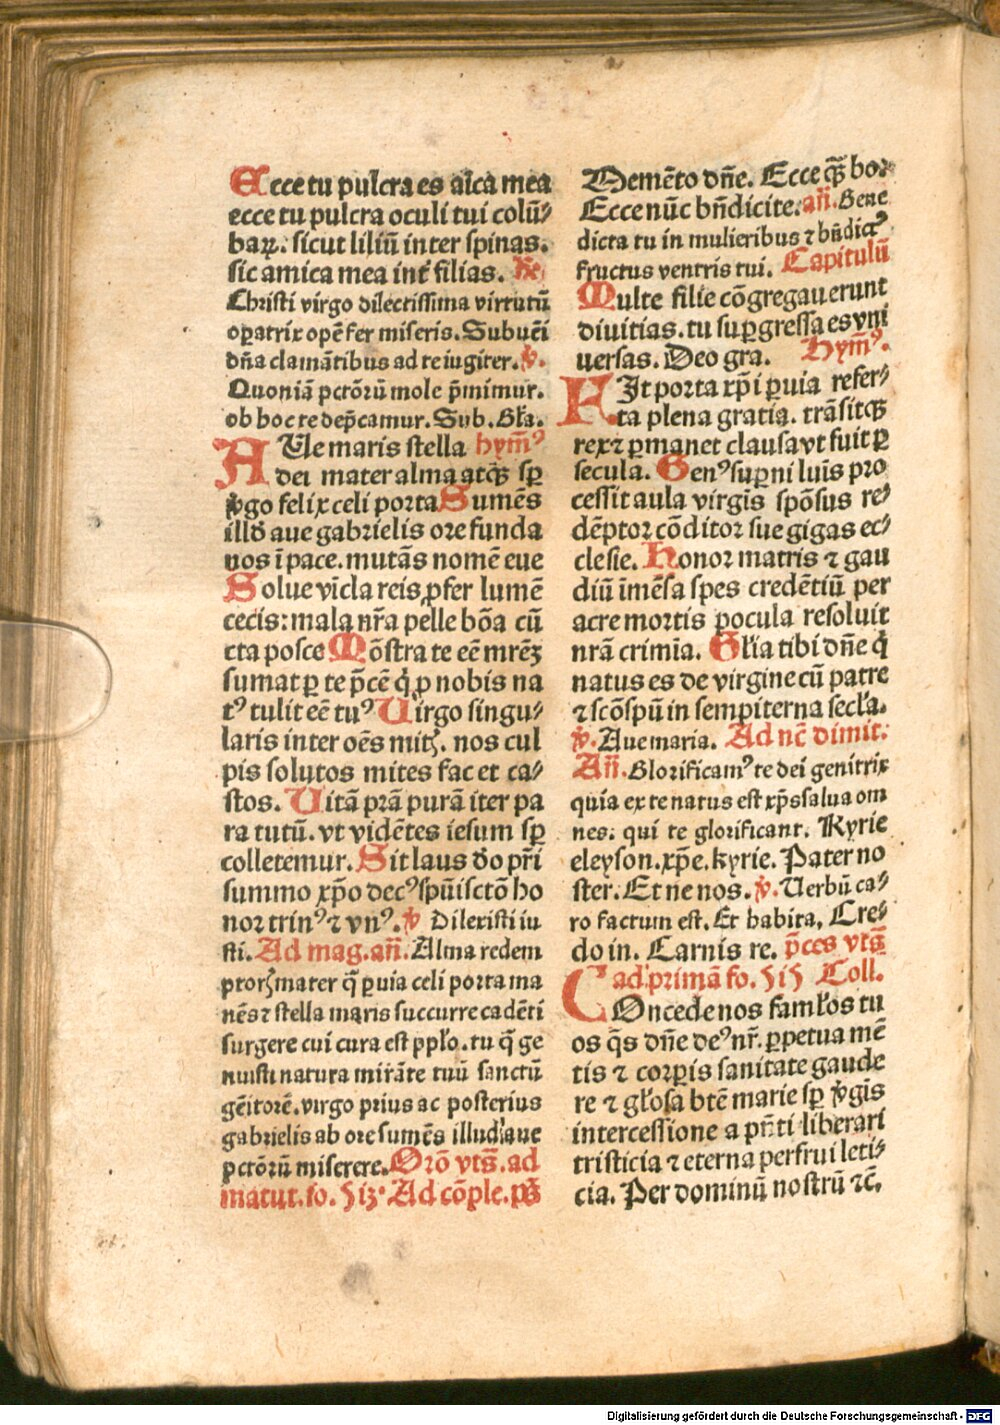 Ecce tu pulcra es aĩca mea
ecce tu pulcra oculi tui colũ⸗
baꝝ. sicut liliũ inter spinas.
sic amica mea int̃ filias. R̃e
Christi virgo dilectissima virtutũ
oꝑatrix opẽ fer miseris. Subuẽi
dñа clamãtibus ad te iugiter. ꝟ.
Quoniã pctõrũ mole p̃mimur.
ob hoc te dep̃camur. Sub. Gl̃a.
AUe maris stella hym̃ꝰ
dei mater alma atqꝫ sp̱
ꝟgo felix celi porta Sumẽs
illđ aue gabrielis ore funda
nos ĩ pace. mutãs nomẽ eue
Solue vĩcla reis ꝓfer lumẽ
cecis: mala nr̃a pelle bõa cũ
cta posce Mõstra te eẽ mrẽꝫ
sumat ꝑ te p̃cẽ q̇ ꝓ nobis na
tꝰ tulit eẽ tuꝰ Uirgo singu⸗
laris inter oẽs mitꝭ. nos cul
pis solutos mites fac et ca⸗
stos. Uitã prã purã iter pa
ra tutũ. vt vidẽtes iesum sp̱
colletemur. Sit laus đo pr̃i
summo xp̃o decꝰ spũisctõ ho
nor trinꝰ ⁊ vnꝰ. ꝟ Dilexisti iu
sti. Ad mag. añ. Alma redem
ptorꝭ mater q̃ ꝑuia celi porta ma
nẽs ⁊ stella maris succurre cadẽti
surgere cui cura est ppl̃o. tu q̃ ge
nuisti natura mirãte tuũ sanctũ
gẽitorẽ. virgo prius ac posterius
gabrielis ab ore sumẽs illud aue
pctõrũ miserere. Orõ vts̃. ad
matut. fo. 512. Ad cõple. ps̃
Memẽto dñe. Ecce q̃ꝫ bo.
Ecce nũc bñdicite. añ. Bene
dicta tu in mulieribus ⁊ bñdictꝰ
fructus ventris tui. Capitulũ
Multe filie cõgregauerunt
diuitias. tu suꝑgressa es vni
uersas. Deo gra. Hym̃ꝰ.
FIt porta xp̃i ꝑuia refer⸗
ta plena gratia. trãsitqꝫ
rex ⁊ ꝑmanet clausa vt fuit ꝑ
secula. Genꝰ suꝑni luĩs pro
cessit aula virgĩs spõsus re⸗
dẽptor cõditor sue gigas ec⸗
clesie. Honor matris ⁊ gau
diũ ĩmẽsa spes credẽtiũ per
acre mortis pocula resoluit
nrã crimĩa. Gl̃ia tibi dñe q̇
natus es de virgine cũ patre
⁊ scõspũ in sempiterna secl̃a.
ꝟ. Aue maria. Ad nc̃ dimit.
Añ. Glorificamꝰ te dei genitrix
quia ex te natus est xp̃s salua om
nes. qui te glorificant. Kyrie
eleyson. xp̃e. kyrie. Pater no
ster. Et ne nos. ꝟ. Uerbũ ca⸗
ro factum est. Et habita. Cre⸗
do in. Carnis re. p̃ces vts̃
ad primã fo. 515 Coll.
COncede nos faml̃os tu
os q̃s dñe deꝰ nr̃. ꝑpetua mẽ
tis ⁊ corꝑis sanitate gaude
re ⁊ gl̃osa btẽ marie sp̱ ꝟgĩs
intercessione a pñti liberari
tristicia ⁊ eterna perfrui leti⸗
cia. Per dominũ nostrũ ⁊c̃.
Digitalisierung gefördert durch die Deutsche Forschungsgemeinschaft - DFG